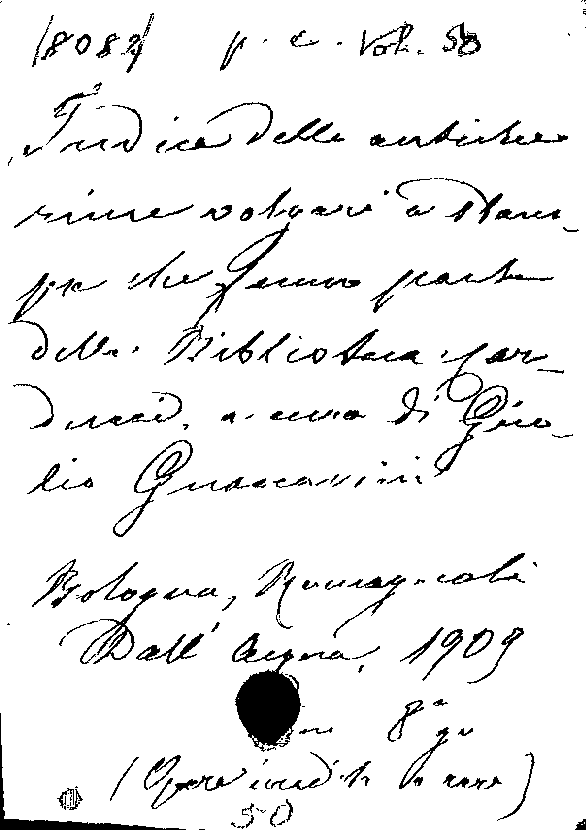 (8082) p. c. Vol. 50
Indice delle antiche
rime volgari a stam-
pa che fanno parte
della Biblioteca Car-
ducci, a cura di Giu-
lio Gnaccarini
Bologna, Romagnoli
Dall' Acqua, 1909
8°
(Opere inedite o rare)
50